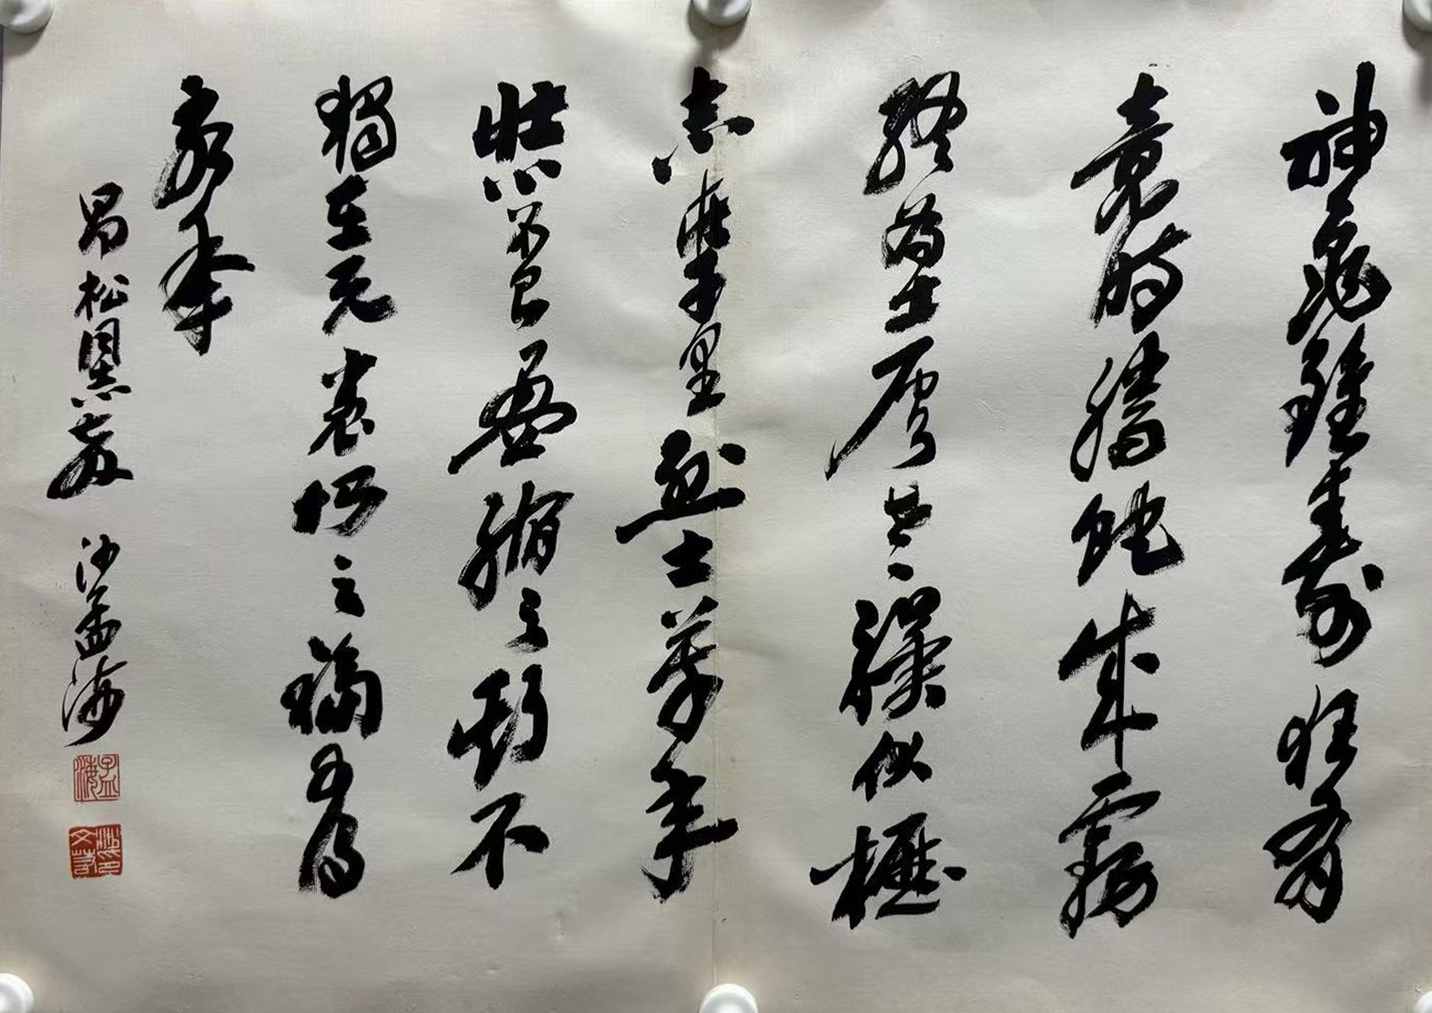 神龜雖壽猶有
竟時騰蛇成霧
終為土灰老驥伏櫪
志在千里烈士暮年
壯心不已盈縮之期不
獨在天養怡之福可得
永年
昌松同志 教 沙孟海
孟海